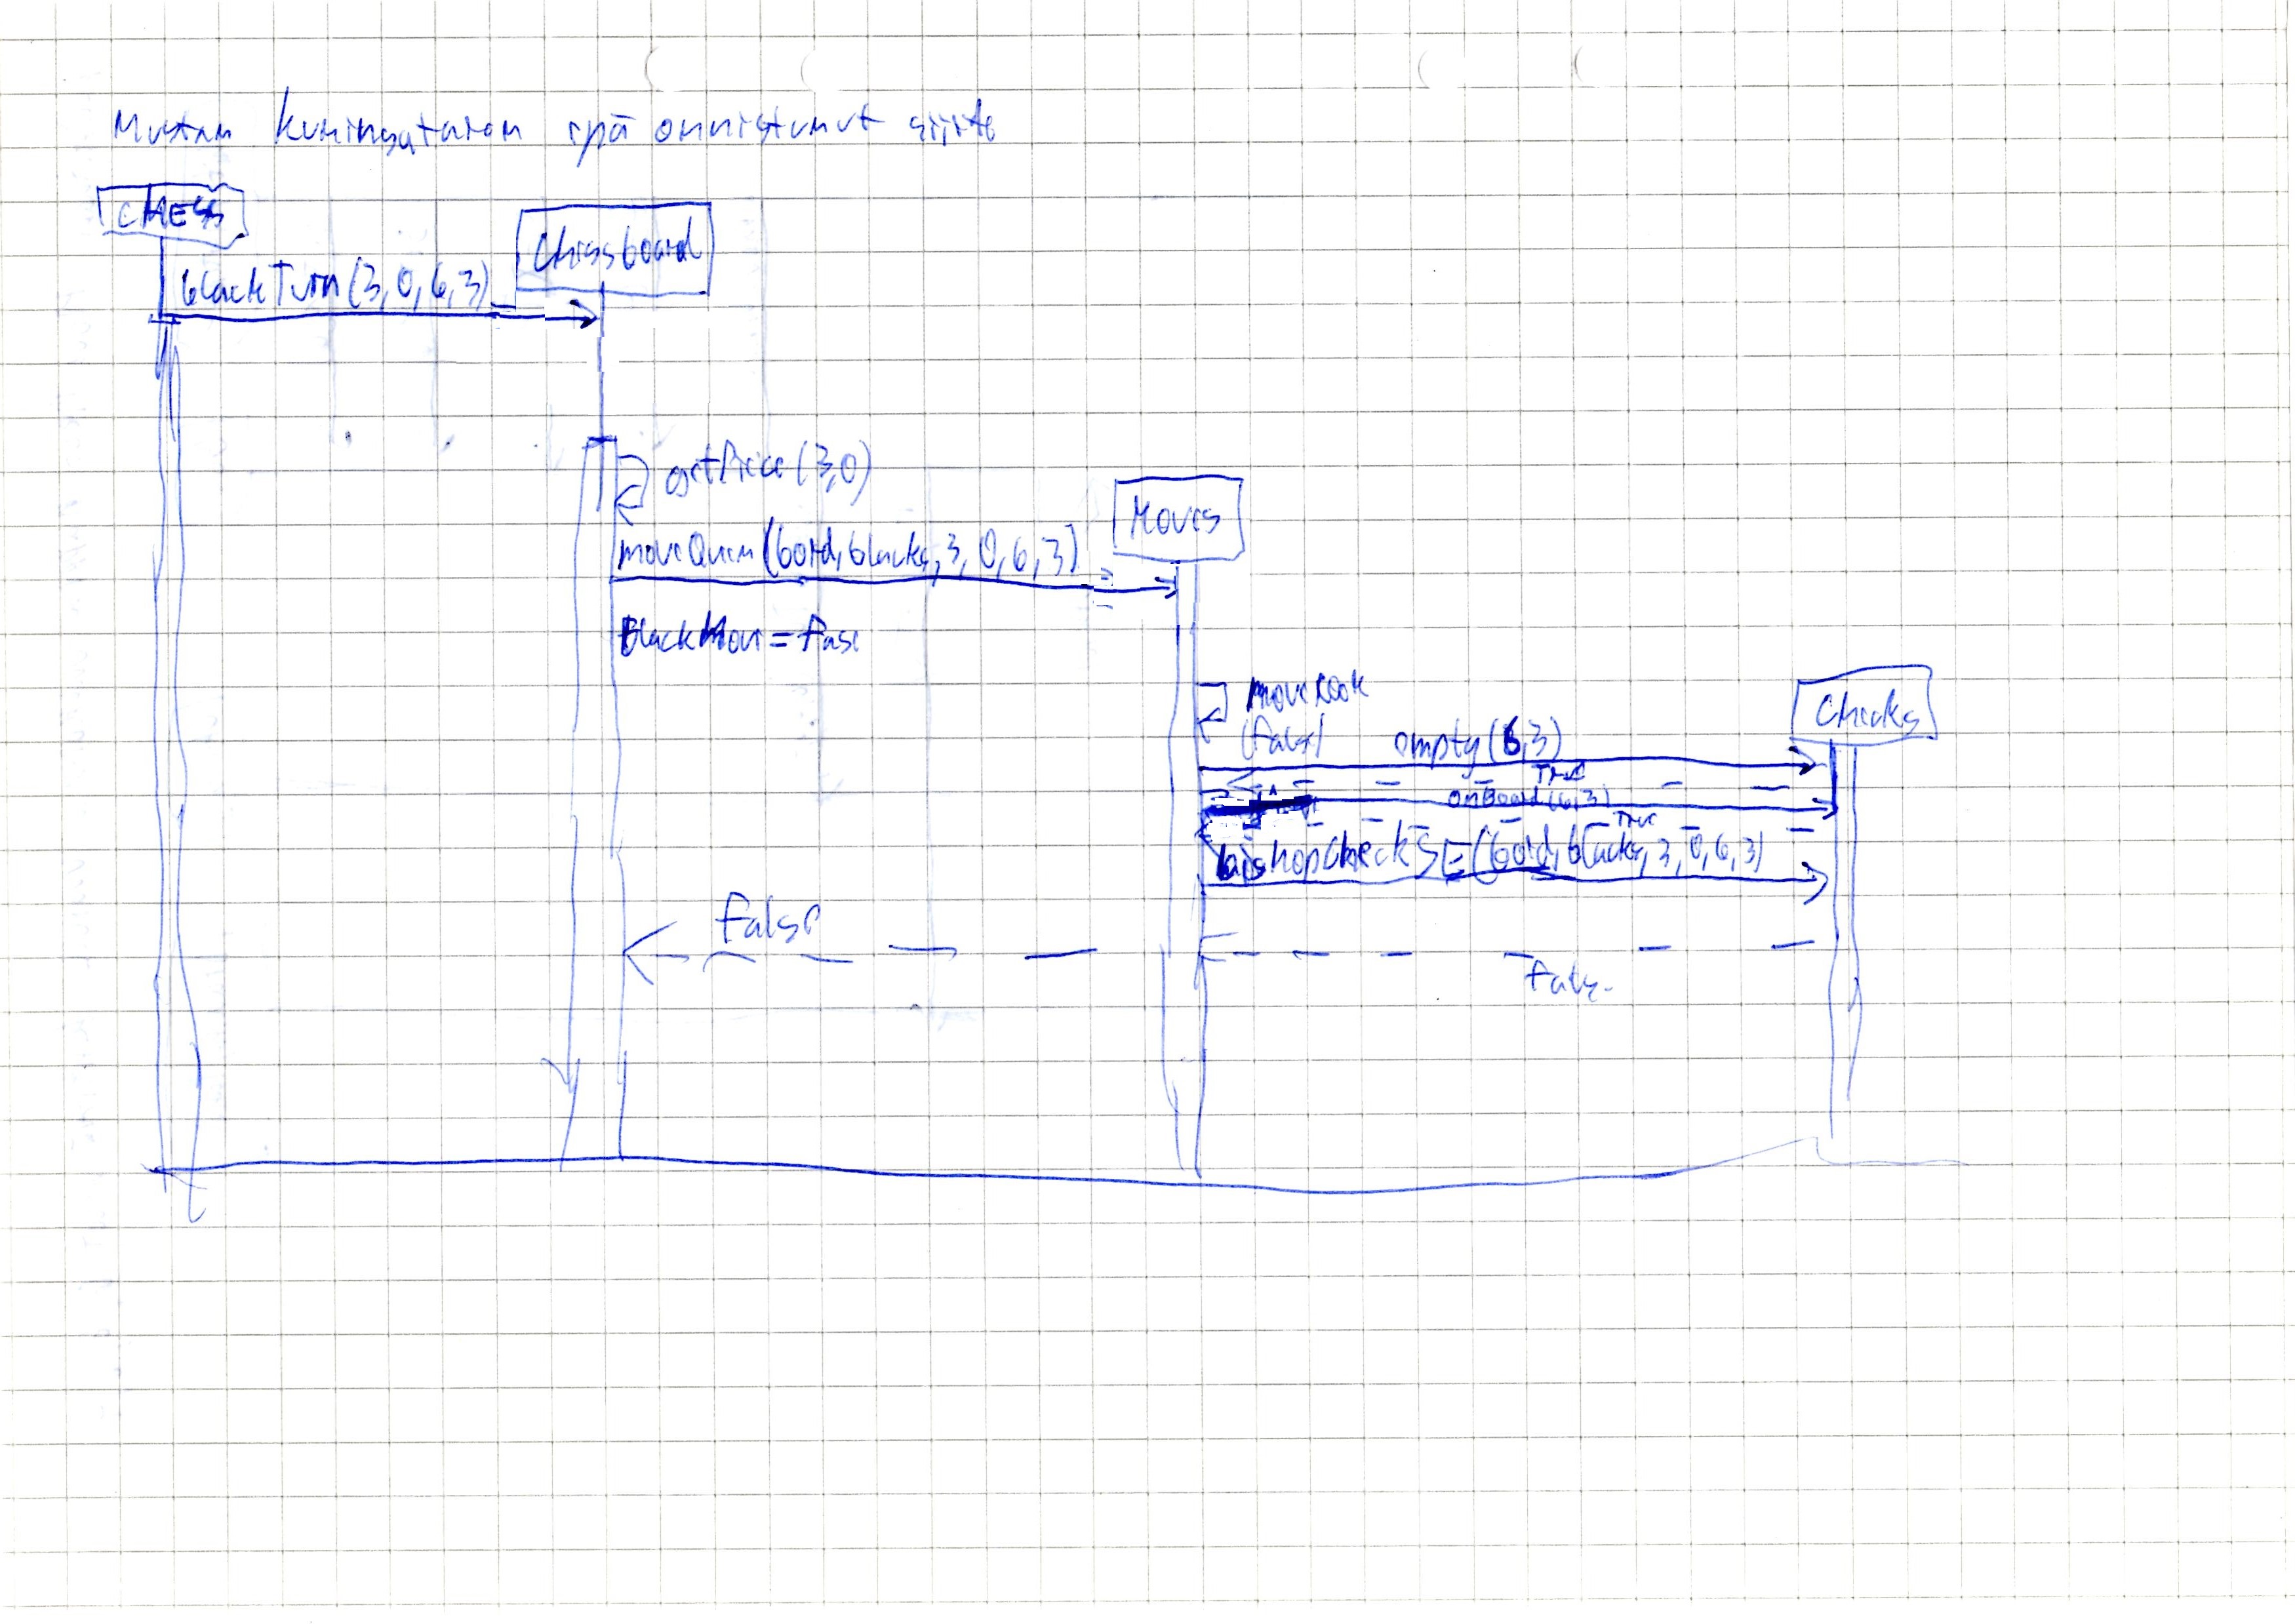 Mustan kuningattaren epäonnistunut siirto
CHESS
Chessboard
blackTurn(3,0,6,3)
getPiece(3,0)
Moves
moveQueen(bord,blacks,3,0,6,3)
BlackMove = fase
moveRook
(false)
Checks
empty(6,3)
True
onBoard(6,3)
True
bishopCheckSE(bord,blacks,3,0,6,3)
false